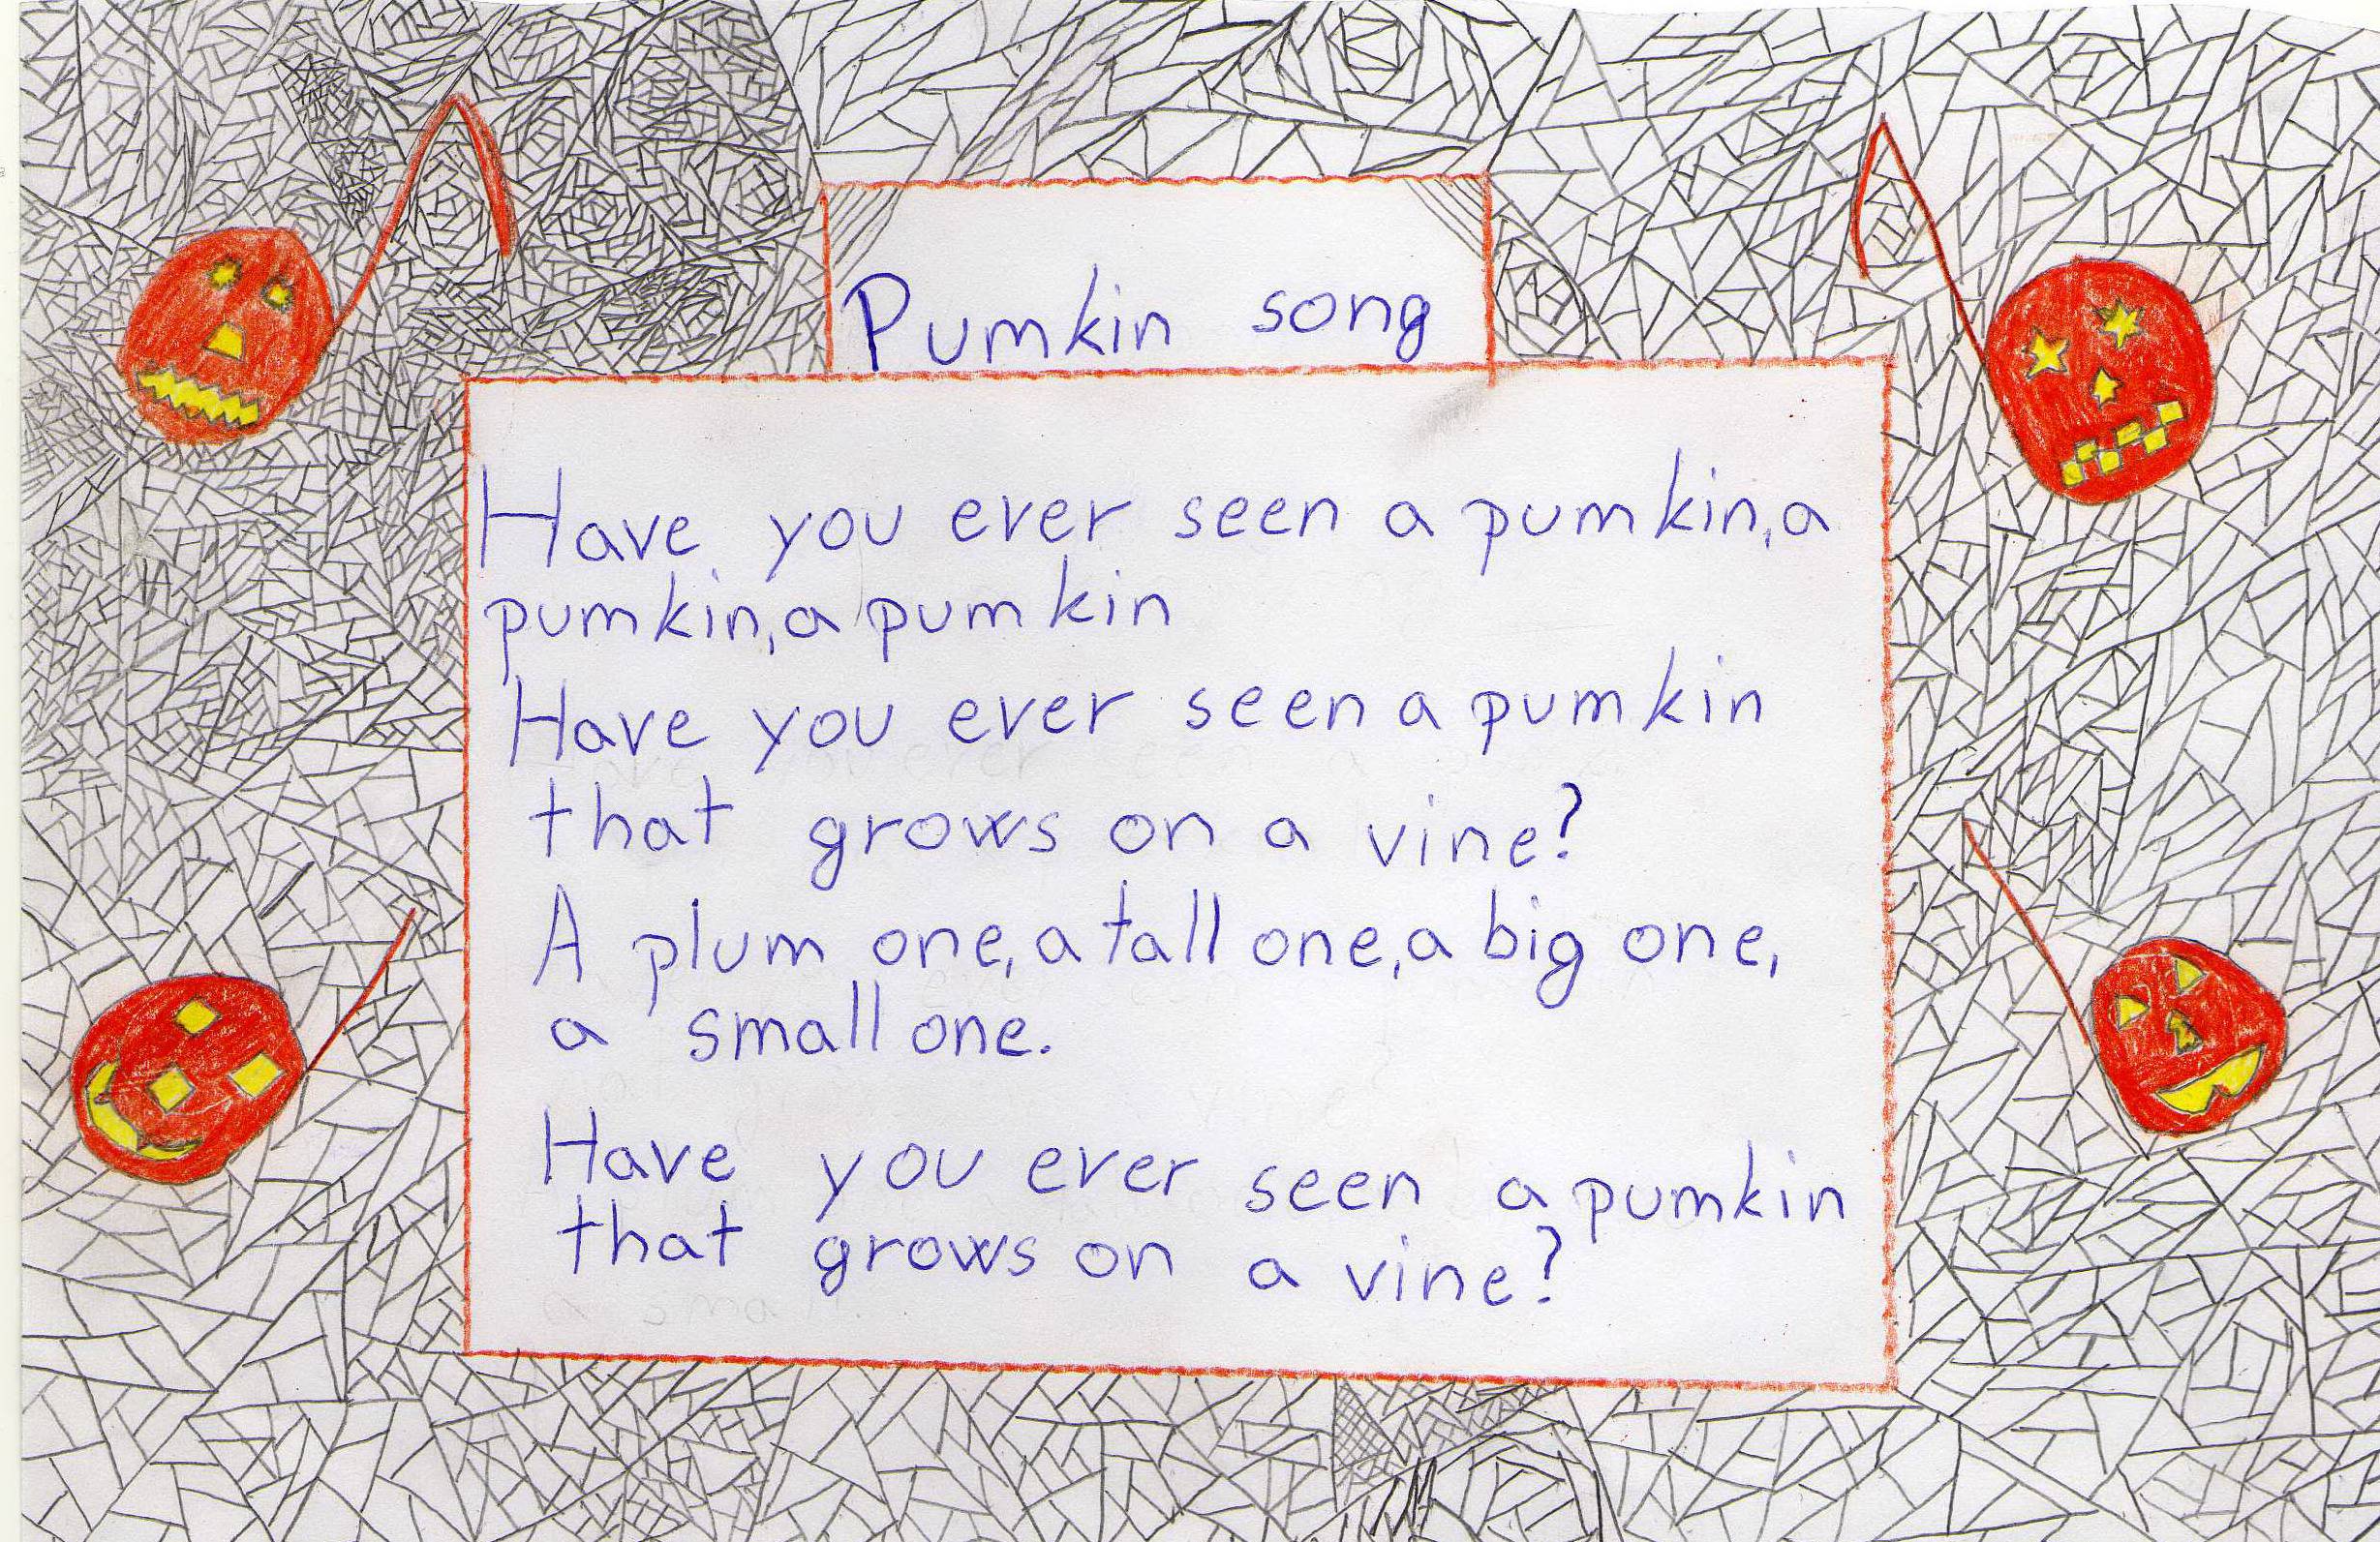 Pumkin song
Have you ever seen a pumkin, a
pumkin, a pumkin
Have you ever seen a pumkin
that grows on a vine?
A plum one, a tall one, a big one,
a small one.
Have you ever seen a pumkin
that grows on a vine?